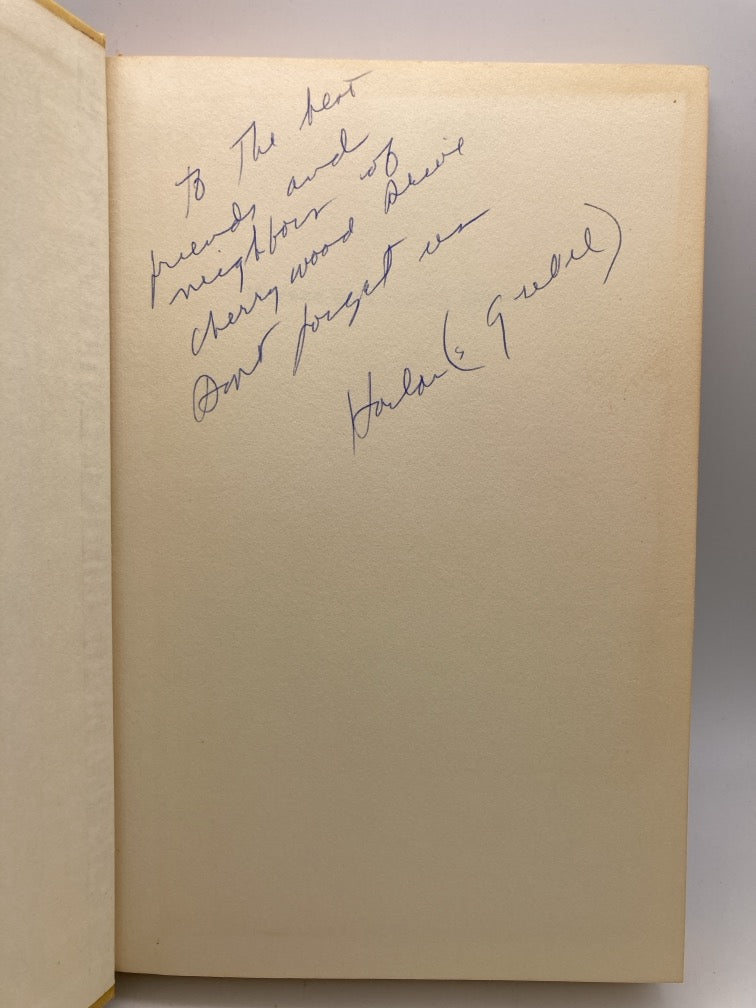 To The best
friends and
neighbours of
cherrywood Drive
Dont forget us
Harlan (&